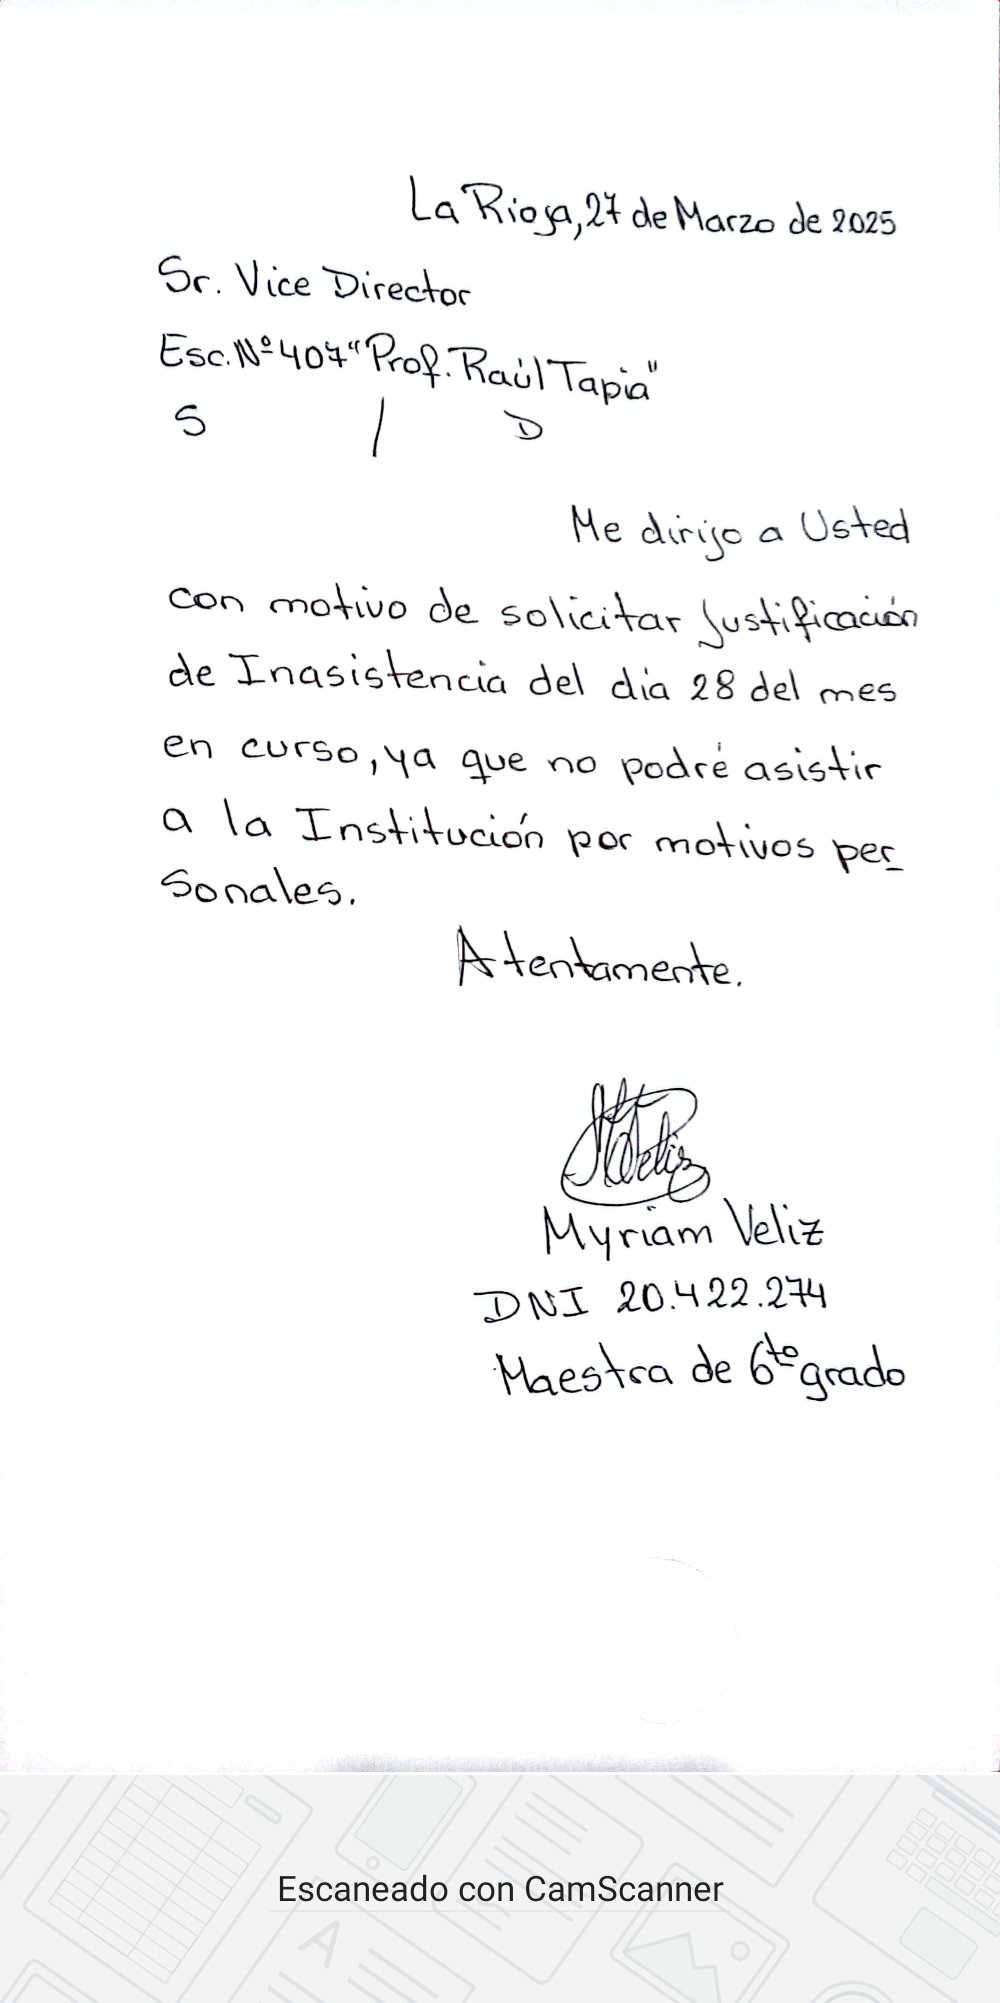 La Rioja, 27 de Marzo de 2025
Sr. Vice Director
Esc. Nº 407 "Prof. Raúl Tapia"
S / D
Me dirijo a Usted
con motivo de solicitar Justificación
de Inasistencia del dia 28 del mes
en curso, ya que no podré asistir
a la Institución por motivos per_
sonales.
Atentamente.
MVeliz
Myriam Veliz
DNI 20.422.274
Maestra de 6to grado
Escaneado con CamScanner